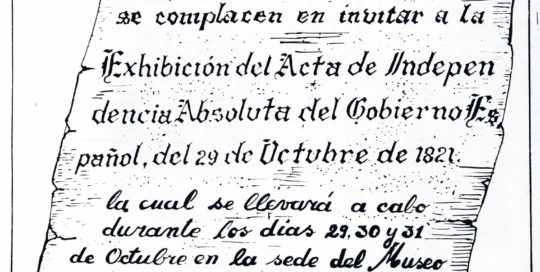 se complacen en invitar a la
Exhibición del Acta de Indepen
dencia Absoluta del Gobierno Es
pañol, del 29 de Octubre de 1821.
la cual se llevará a cabo
durante los días 29, 30 y 31
de Octubre en la sede del Museo